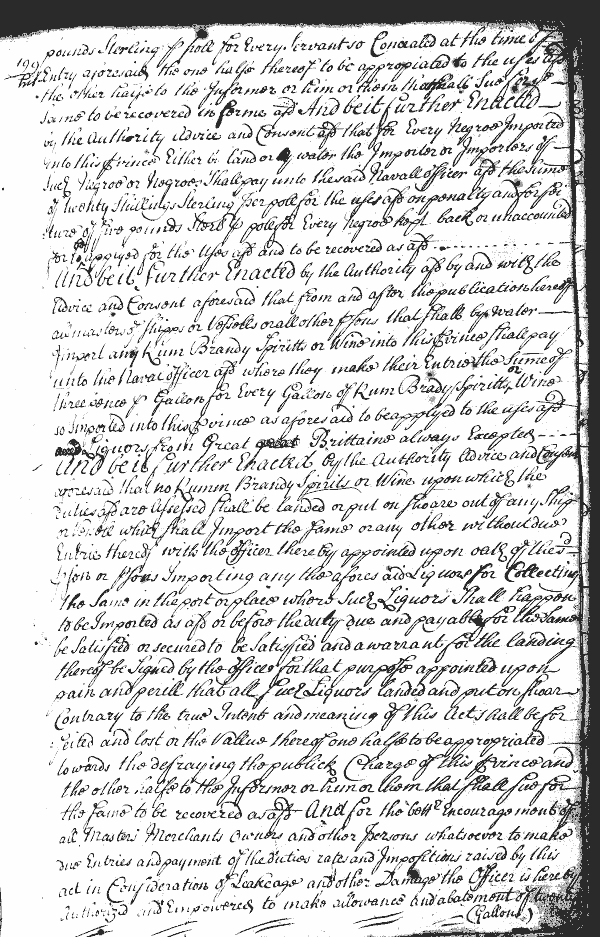 pounds Sterling p poll for Every Servant so Concealed at the time of
199
Entry aforesaid, the one halfe thereof to be appropiated to the uses afsd
the other halfe to the Informer or him or them that shall Sue for ye
same to be recovered in forme afsd And be it further Enacted
by the Authority Advice and Consent afsd that for Every Negroe Imported
into this Prince Either by land or by water the Importer or Importers of
Such Negroe or Negroes Shall pay unto the said Navall officer afsd the Sume
of twenty Shillings Sterling per pole for the uses afsd on penalty and forfei
ture of five pounds Sterl p pole for Every Negroe kept back or unaccounted
for to be applyed for the Uses afsd and to be recovered as afsd
And be it further Enacted by the Authority afsd by and with the
Advice and Consent aforesaid that from and after the publication hereof
all masters of Shipps or Vessells or all other psons that shall by water
Import any Rum Brandy Spiritts or Wine into this Prince shall pay
unto the Naval officer afsd where they make their Entrie the Sume of
three pence p Gallon for Every Gallon of Rum Brady Spiritts or Wine
so imported into this Prince as aforesaid to be applyed to the uses afsd
Liquors from Great Brittaine always Excepted
And be it further Enacted by the Authority Advice and Consent
aforesaid that no Rumm Brandy Spirits or Wine upon which the
Duties afsd are Assessed shall be landed or put on shoare out of any Ship
or Vessell which shall Import the same or any other without due
Entrie thereof with the officer thereby appointed upon oath of the sd
pson or psons Importing any the aforesaid Liquors for Collecting
the Same in the port or place where Such Liquors Shall happen
to be Imported as afsd or before the duty due and payable for the Same
be Satisfied or secured to be Satisfied and a warrant for the landing
thereof be Signed by the officer for that purpose appointed upon
pain and perill that all such Liquors landed and put on shoar
Contrary to the true Intent and meaning of this Act shall be for
feited and lost or the Vallue thereof one halfe to be appropriated
towards the defraying the publick Charge of this Prince and
the other halfe to the Informer or him or them that shall sue for
the same to be recovered as afsd And for the bettr Encouragement of
all Masters Merchants Owners and other Persons whatsoever to make
due Entries and payment of the duties rates and Impositions raised by this
act in Consideration of Leakeage and other Damage the Officer is hereby
Authorized and Empowered to make allowance and abatement of twenty
(Gallons)